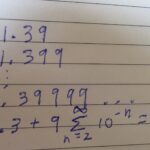 1.39
1.399
⋮
.39999...
.3 + 9 ∑_{n=2}^{∞} 10^{-n} =